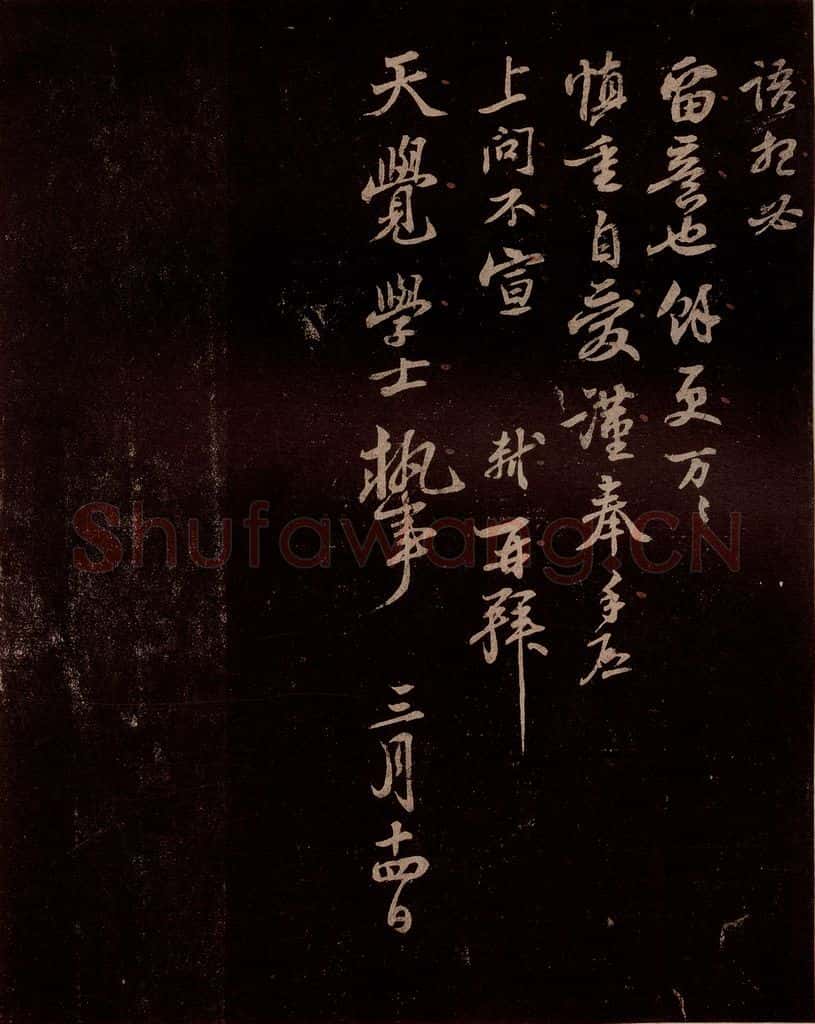 語想必
留意也餘更万〻
慎重自愛謹奉手啓
上問不宣 軾再拜
天覺學士執事 三月十四日
Shufawang.CN